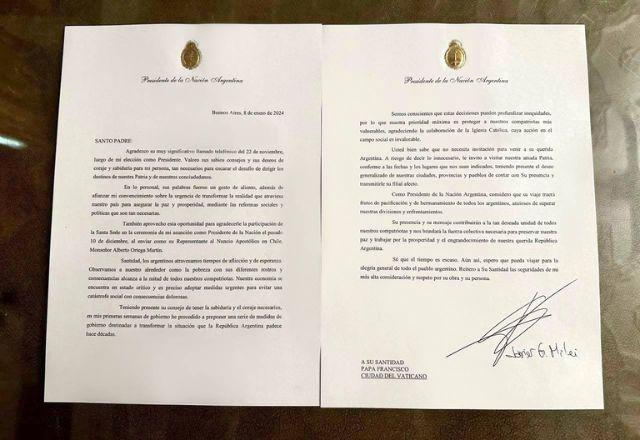 Presidente de la Nación Argentina
Buenos Aires, 8 de enero de 2024
SANTO PADRE:
Agradezco su muy significativo llamado telefónico del 22 de noviembre,
luego de mi elección como Presidente. Valoro sus sabios consejos y sus deseos de
coraje y sabiduría para mi persona, tan necesarios para encarar el desafío de dirigir los
destinos de nuestra Patria y de nuestros conciudadanos.
En lo personal, sus palabras fueron un gesto de aliento, además de
afianzar mi convencimiento sobre la urgencia de transformar la realidad que atraviesa
nuestro país para asegurar la paz y prosperidad, mediante las reformas sociales y
políticas que son tan necesarias.
También aprovecho esta oportunidad para agradecerle la participación de
la Santa Sede en la ceremonia de mi asunción como Presidente de la Nación el pasado
10 de diciembre, al enviar como su Representante al Nuncio Apostólico en Chile,
Monseñor Alberto Ortega Martín.
Santidad, los argentinos atravesamos tiempos de aflicción y de esperanza.
Observamos a nuestro alrededor como la pobreza con sus diferentes rostros y
consecuencias alcanza a la mitad de todos nuestros compatriotas. Nuestra economía se
encuentra en estado crítico y es preciso adoptar medidas urgentes para evitar una
catástrofe social con consecuencias dolorosas.
Teniendo presente su consejo de tener la sabiduría y el coraje necesarios,
en mis primeras semanas de gobierno he procedido a proponer una serie de medidas de
gobierno destinadas a transformar la situación que la República Argentina padece
hace décadas.
Presidente de la Nación Argentina
Somos conscientes que estas decisiones pueden profundizar inequidades,
por lo que nuestra prioridad máxima es proteger a nuestros compatriotas más
vulnerables, agradeciendo la colaboración de la Iglesia Católica, cuya acción en el
campo social es invalorable.
Usted bien sabe que no necesita invitación para venir a su querida
Argentina. A riesgo de decir lo innecesario, le invito a visitar nuestra amada Patria,
conforme a las fechas y lugares que nos sean indicados, teniendo presente el deseo
generalizado de nuestras ciudades, provincias y pueblos de contar con Su presencia y
transmitirle su filial afecto.
Como Presidente de la Nación Argentina, considero que su viaje traerá
frutos de pacificación y de hermanamiento de todos los argentinos, ansiosos de superar
nuestras divisiones y enfrentamientos.
Su presencia y su mensaje contribuirán a la tan deseada unidad de todos
nuestros compatriotas y nos brindará la fuerza colectiva necesaria para preservar nuestra
paz y trabajar por la prosperidad y el engrandecimiento de nuestra querida República
Argentina.
Sé que el tiempo es escaso. Aún así, espero que pueda viajar para la
alegría general de todo el pueblo argentino. Reitero a Su Santidad las seguridades de mi
más alta consideración y respeto por su obra y su persona.
Javier G. Milei
A SU SANTIDAD
PAPA FRANCISCO
CIUDAD DEL VATICANO